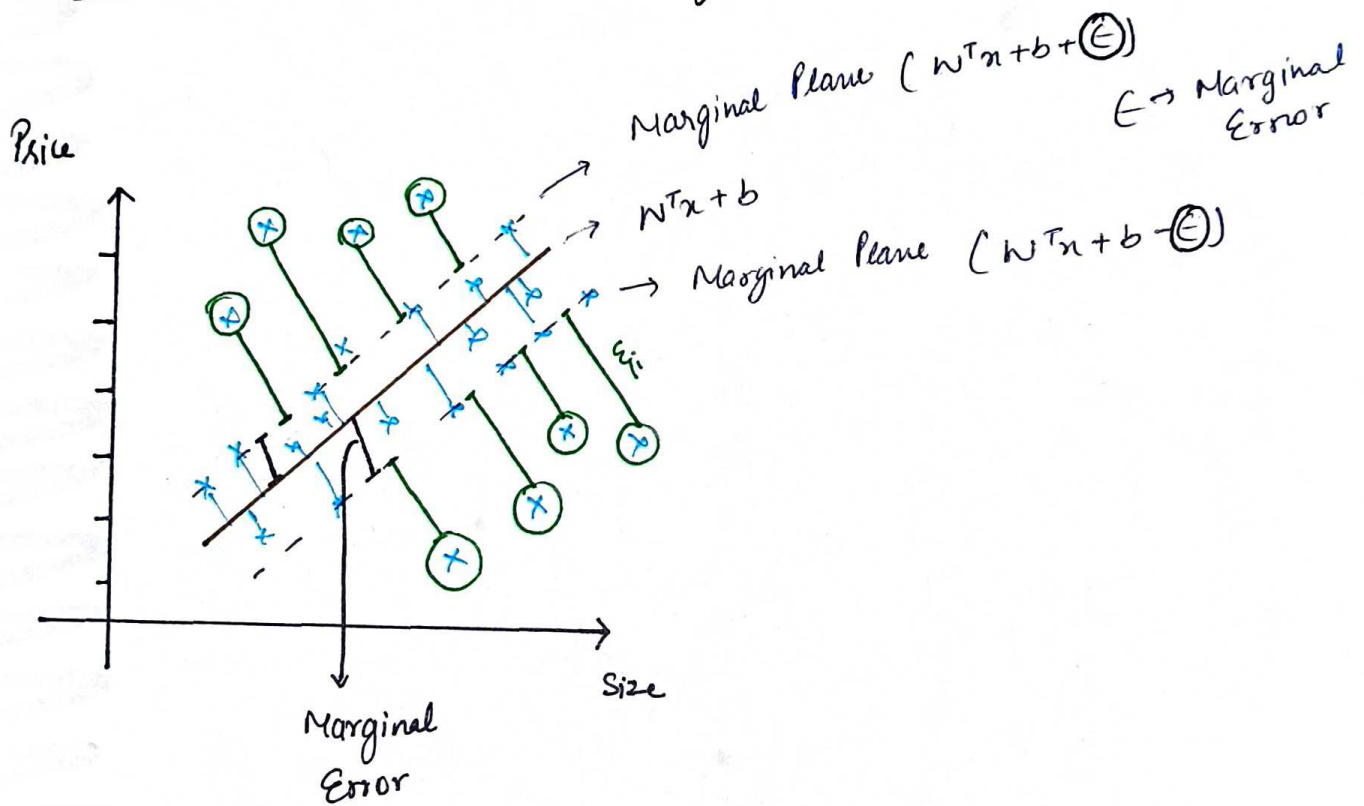 Marginal Plane (WᵀX + b + Ɛ)
Ɛ → Marginal
Error
Price
WᵀX + b
Marginal Plane (WᵀX + b - Ɛ)
Ɛᵢ
Size
Marginal
Error